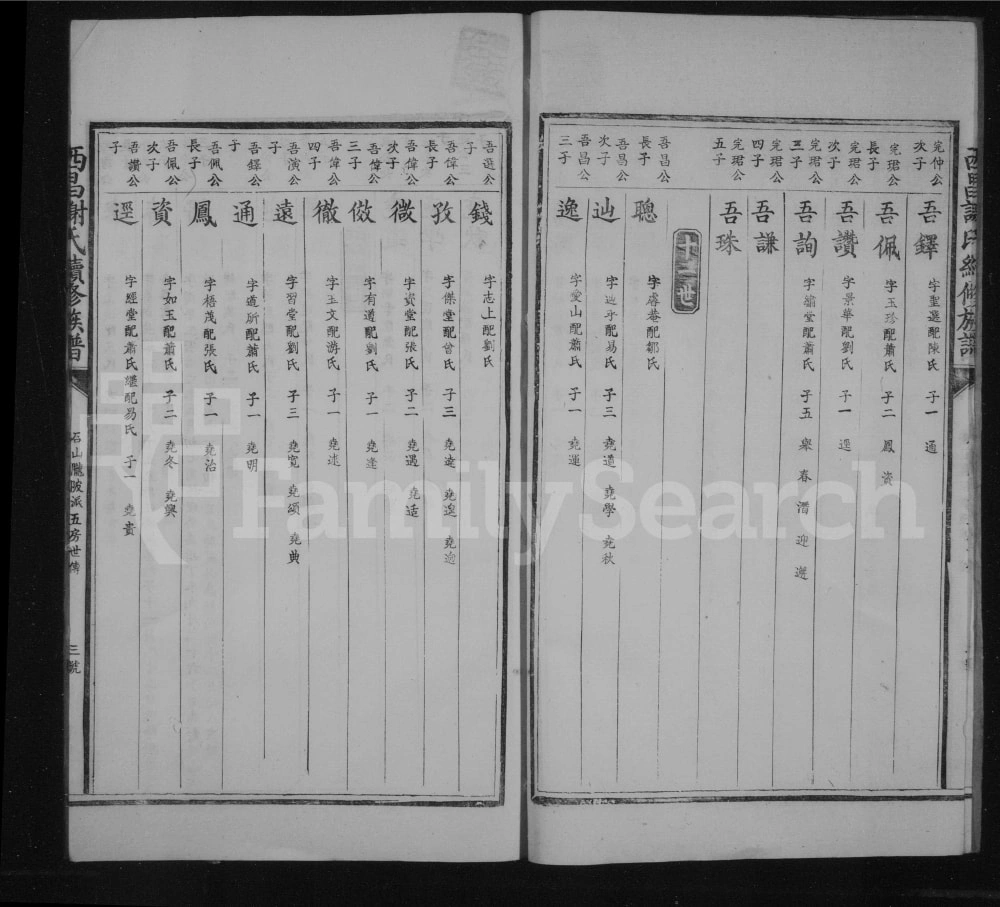 完仲公次子
吾鐸
字聖選配陳氏 子一 通
完珺公長子
吾佩
字玉珍配蕭氏 子二 鳳 資
完珺公次子
吾讚
字景華配劉氏 子一 逕
完珺公三子
吾詢
字繡堂配蕭氏 子五 舉 春 潛 迎 邂
完珺公四子
吾謙
完珺公五子
吾珠
十二世
吾昌公長子
聰
字睿菴配鄒氏
吾昌公次子
辿
配易氏 子三 堯遣 堯學 堯秋
吾昌公三子
逸
字愛山配蕭氏 子一 堯運
吾選公子
錢
字志上配劉氏
吾偉公長子
孜
字傑堂配曾氏 子三 堯達 堯逸 堯逾
吾偉公次子
微
字資堂配張氏 子二 堯遇 堯适
吾偉公三子
傚
字有道配劉氏 子一 堯逢
吾偉公四子
徹
字玉文配游氏 子一 堯述
吾演公子
遠
字習堂配劉氏 子三 堯寬 堯頌 堯典
吾鐸公子
通
字道所配蕭氏 子一 堯明
吾佩公長子
鳳
字梧茂配張氏 子一 堯治
吾佩公次子
資
字如玉配蕭氏 子二 堯冬 堯興
吾讚公子
逕
字經堂配蕭氏繼配易氏 子一 堯貴
西昌謝氏續修族譜
石山隴陂派五房世傳
三號
FamilySearch